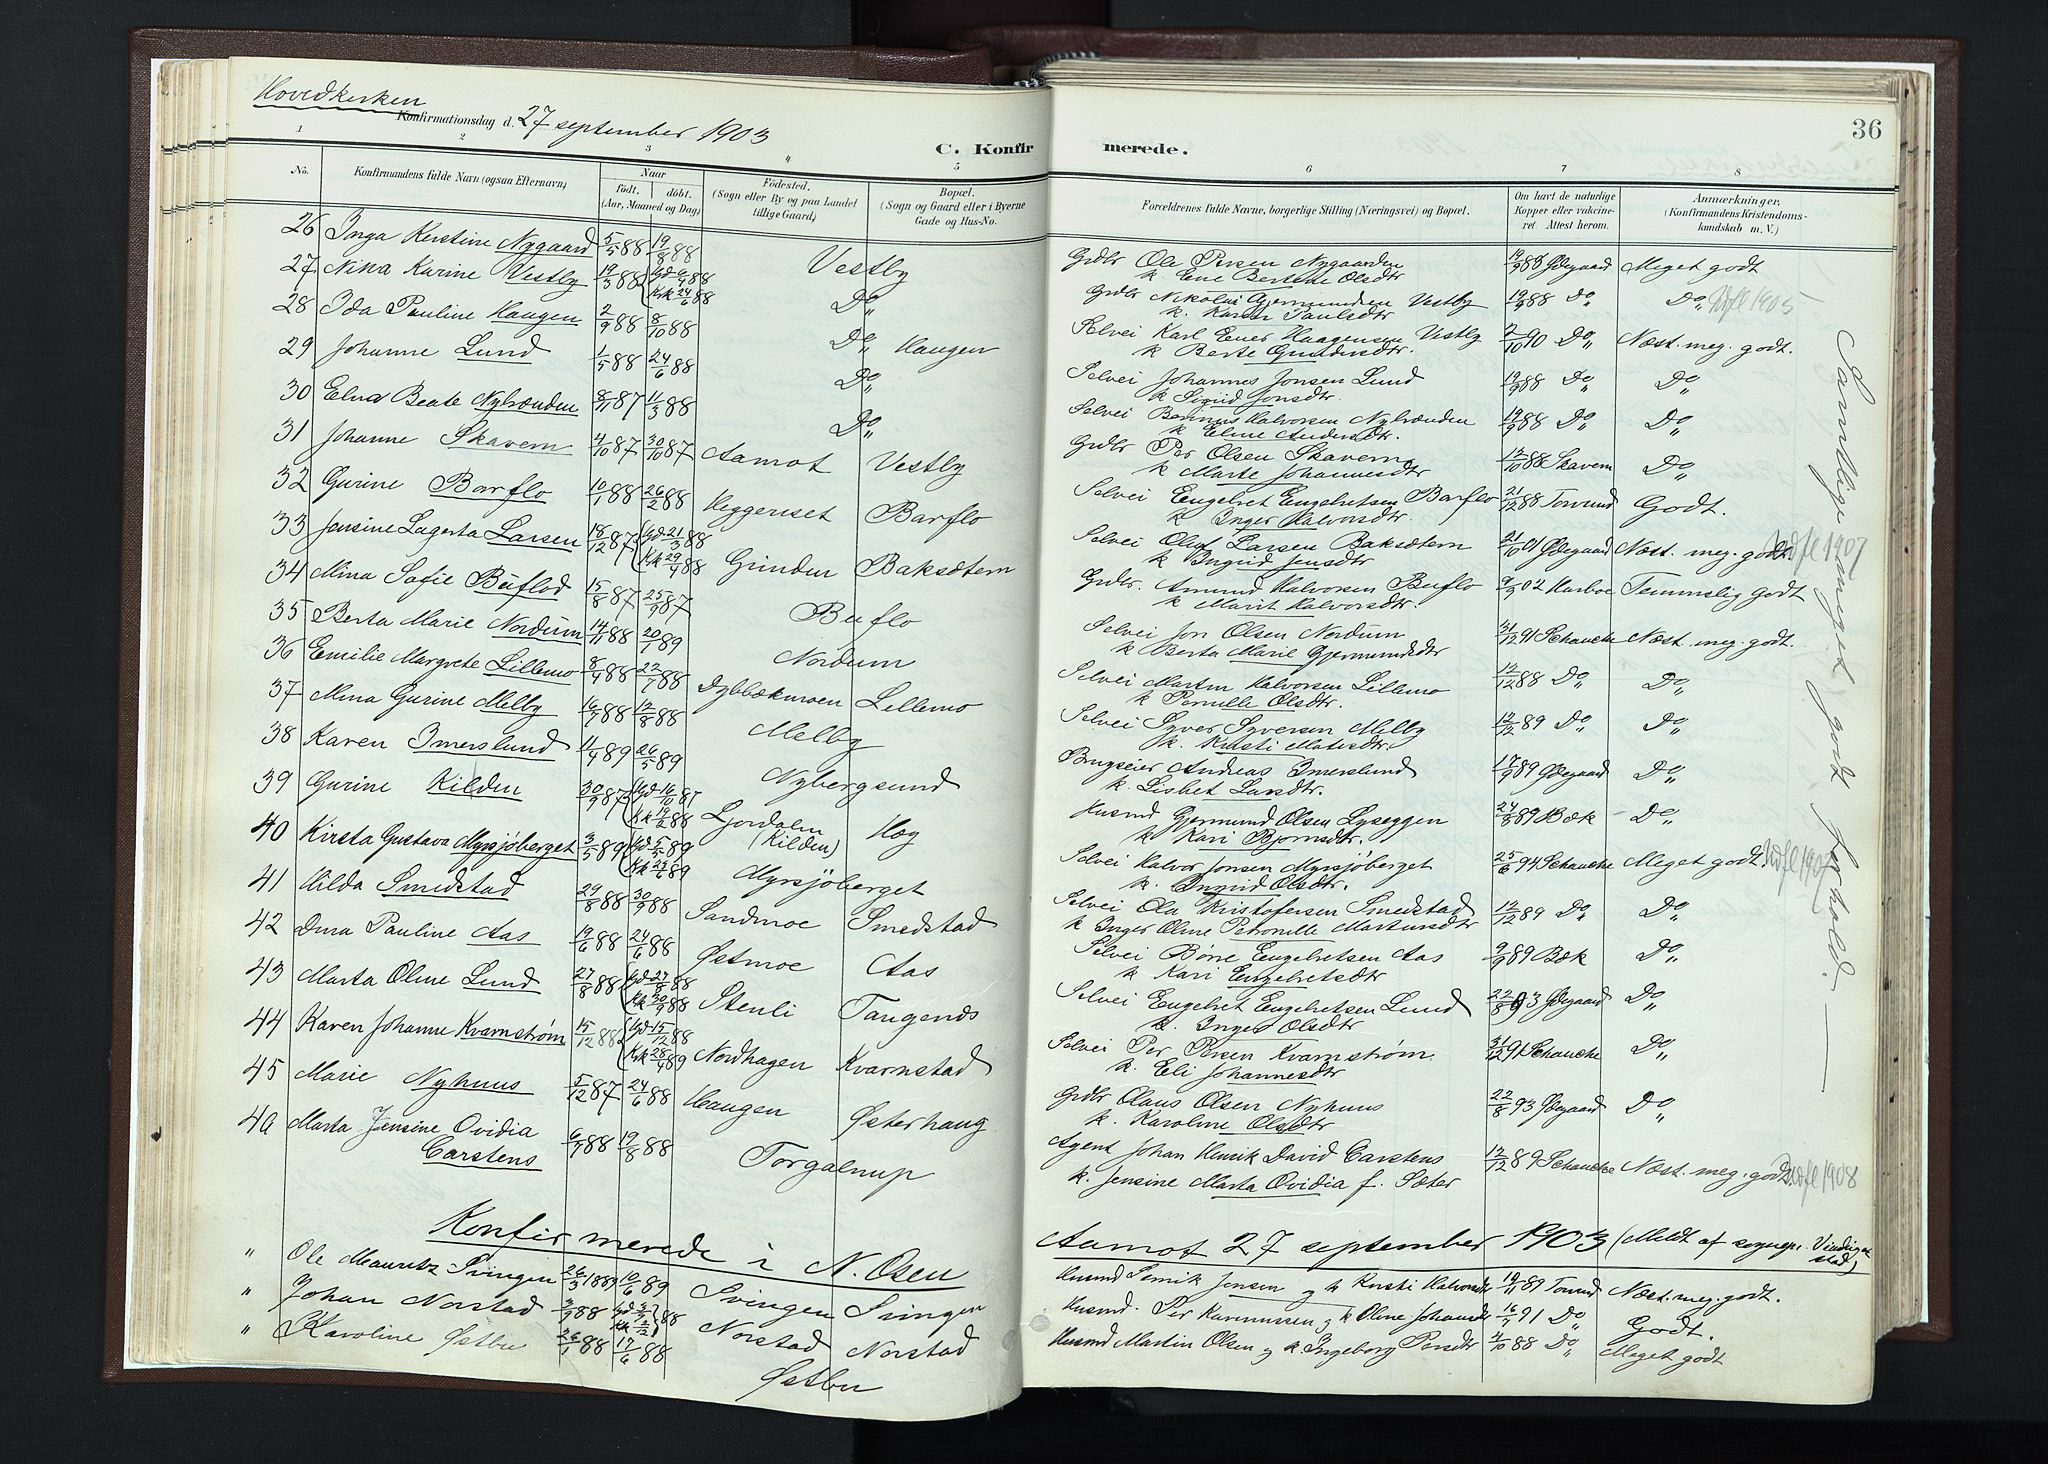 Hovedkirken
Konfirmationsdag d. 27 september 1903
C. Konfirmerede.
36
1 2 3 4 5 6 7 8
No. Konfirmandens fulde Navn (ogsaa Efternavn) Naar födt. döbt. (Aar, Maaned og Dag) Födested. (Sogn eller By og paa Landet tillige Gaard) Bopæl. (Sogn og Gaard eller i Byerne Gade og Hus-No. Forældrenes fulde Navne, borgerlige Stilling (Næringsvei) og Bopæl. Om havt de naturlige Kopper eller vakcineret. Attest herom. Anmærkninger. (Konfirmandens Kristendomskundskab m. V.)
26 Inga Kerstine Nygaard 5/5 88 19/8 88 Vestby Grdbr Ole Persen Nygaarden k Ene Bertine Olsdtr Ødegaard Meget godt
27 Nina Karine Vestby 19/3 88 Gd 6/4 88 Krk 24/6 88 Do Grdbr Nikolai Gjermundsen Vestby k. Karen Paulsdtr 19/9 88 Do Do Udfl 1905
28 Ida Pauline Haugen 2/9 88 8/10 88 Do Haugen Selvei Karl Ener Haagensen Vestby k Berte Gundersdtr. 2/10 90 Do Næst. meg. godt.
29 Johanne Lund 1/5 88 24/6 88 Do Selvei Johannes Jonsen Lund k Sigrid Jonsdtr. 19/9 88 Do Do
30 Elna Beate Nybrænden 8/11 87 11/3 88 Do Selvei Halvorsen Nybrænden k Eline Andersdtr. 19/9 88 Do Do
31 Johanne Skavern 4/10 87 30/10 87 Aamot Vestby Grdbr Per Olsen Skavern k Marte Johannesdtr 12/10 88 Skavern Do
32 Gurine Barflo 10/1 88 26/2 88 Heggeriset Barflo Selvei Engebret Engebretsen Barflo k Inger Halvorsdtr. 21/12 88 Tørrud Godt.
33 Jensine Lagerta Larsen 18/12 87 Gd 21/3 88 Krk 29/4 88 Grinden Baksætern Selvei Oluf Larsen Baksætern k Ingrid Jensdtr 21/10 Ødegaard Næst. meg. godt. Udfl 1907
34 Mina Sofie Büflod 15/8 87 25/9 87 Büflo Grdbr. Amund Halvorsen Büflo k Marit Halvorsdtr. 9/9 02 Harboe Temmelig godt
35 Berta Marie Nordum 14/11 88 20/1 89 Nordum Selvei Jon Olsen Nordum k Berta Marie Gjermundsdtr 31/12 91 Schancke Næst. meg. godt.
36 Emilie Margrete Lillemo 8/4 88 22/7 88 Dybbækmoen Lillemo Selvei Martin Halvorsen Lillemo k Pernille Olsdtr. 12/12 88 Do Do
37 Mina Gurine Melby 16/7 88 12/8 88 Melby Selvei Syver Syversen Melby k. Kristi Matisdtr. 12/12 89 Do Do
38 Karen Imerslund 11/4 89 26/5 89 Nybergsund Brugseier Andreas Imerslund k. Lisbet Larsdtr. 17/9 89 Ødegaard Do
39 Gurine Kilden 30/9 87 Gd 16/10 87 Krk 19/2 88 Ljørdalen (Kilden) Hæg Husmd Gjermund Olsen Lyseggen k Kari Bjørnsdtr. 24/8 89 Bæk Do
40 Kirsta Gustava Myrsjöberget 3/5 89 Gd 5/5 89 Krk 24/6 89 Myrsjöberget Selvei Halvor Jonsen Myrsjöberget k. Ingrid Olsdtr. 25/6 94 Schancke Meget godt. Udfl 1907
41 Hilda Smedstad 29/8 88 30/9 88 Sandmoe Smedstad Selvei Ola Kristofersen Smedstad k Inger Oline Petronille Martinsdtr 12/12 89 Do Do
42 Dina Pauline Aas 19/6 88 24/6 88 Østmoe Aas Selvei Børre Engebretsen Aas k Kari Engebretsdtr 9/9 89 Bæk Do
43 Marta Oline Lund 27/8 88 Gd 27/8 88 Krk 30/9 88 Stenli Tangends Selvei Engebret Engebretsen Lund k. Inger Olsdtr 22/8 93 Ødegaard Do
44 Karen Johanne Kvarnstrøm 15/12 88 Gd 15/12 88 Krk 28/4 89 Nordhagen Kvarnstad Selvei Per Persen Kvarnstrøm k. Eli Johannesdtr 31/12 91 Schancke Do
45 Marie Nyhuus 5/12 87 24/6 88 Haugen Østerhaug Grdbr Olaus Olsen Nyhuus k. Karoline Olsdtr 22/8 93 Ødegaard Do
46 Marta Jensine Ovidia Carstens 6/7 88 19/8 88 Torgalnup Agent Johan Henrik David Carstens k. Jensine Marta Ovidia f. Sæter 12/12 89 Schancke Næst. meg. godt. Udfl 1908
Samtlige meget godt forhold.
Konfirmerede i N. Osen Aamot 27 september 1903 (Meldt af sognepr. Vindingstad)
" Ole Mauritz Svingen 26/3 1889 10/6 89 Svingen Svingen Husmd Semik Jensen og k Kirsti Halvorsdtr 19/11 89 Tørrud Næst. meg. godt.
" Johan Norstad 3/9 88 Norstad Norstad Husmd. Per Rasmussen og k Oline Johansdtr 16/7 91 Do Godt.
" Karoline Østbu 26/1 88 17/6 88 Østbu Husmd Martin Olsen og k. Ingeborg Persdtr 4/10 88 Do Meget godt